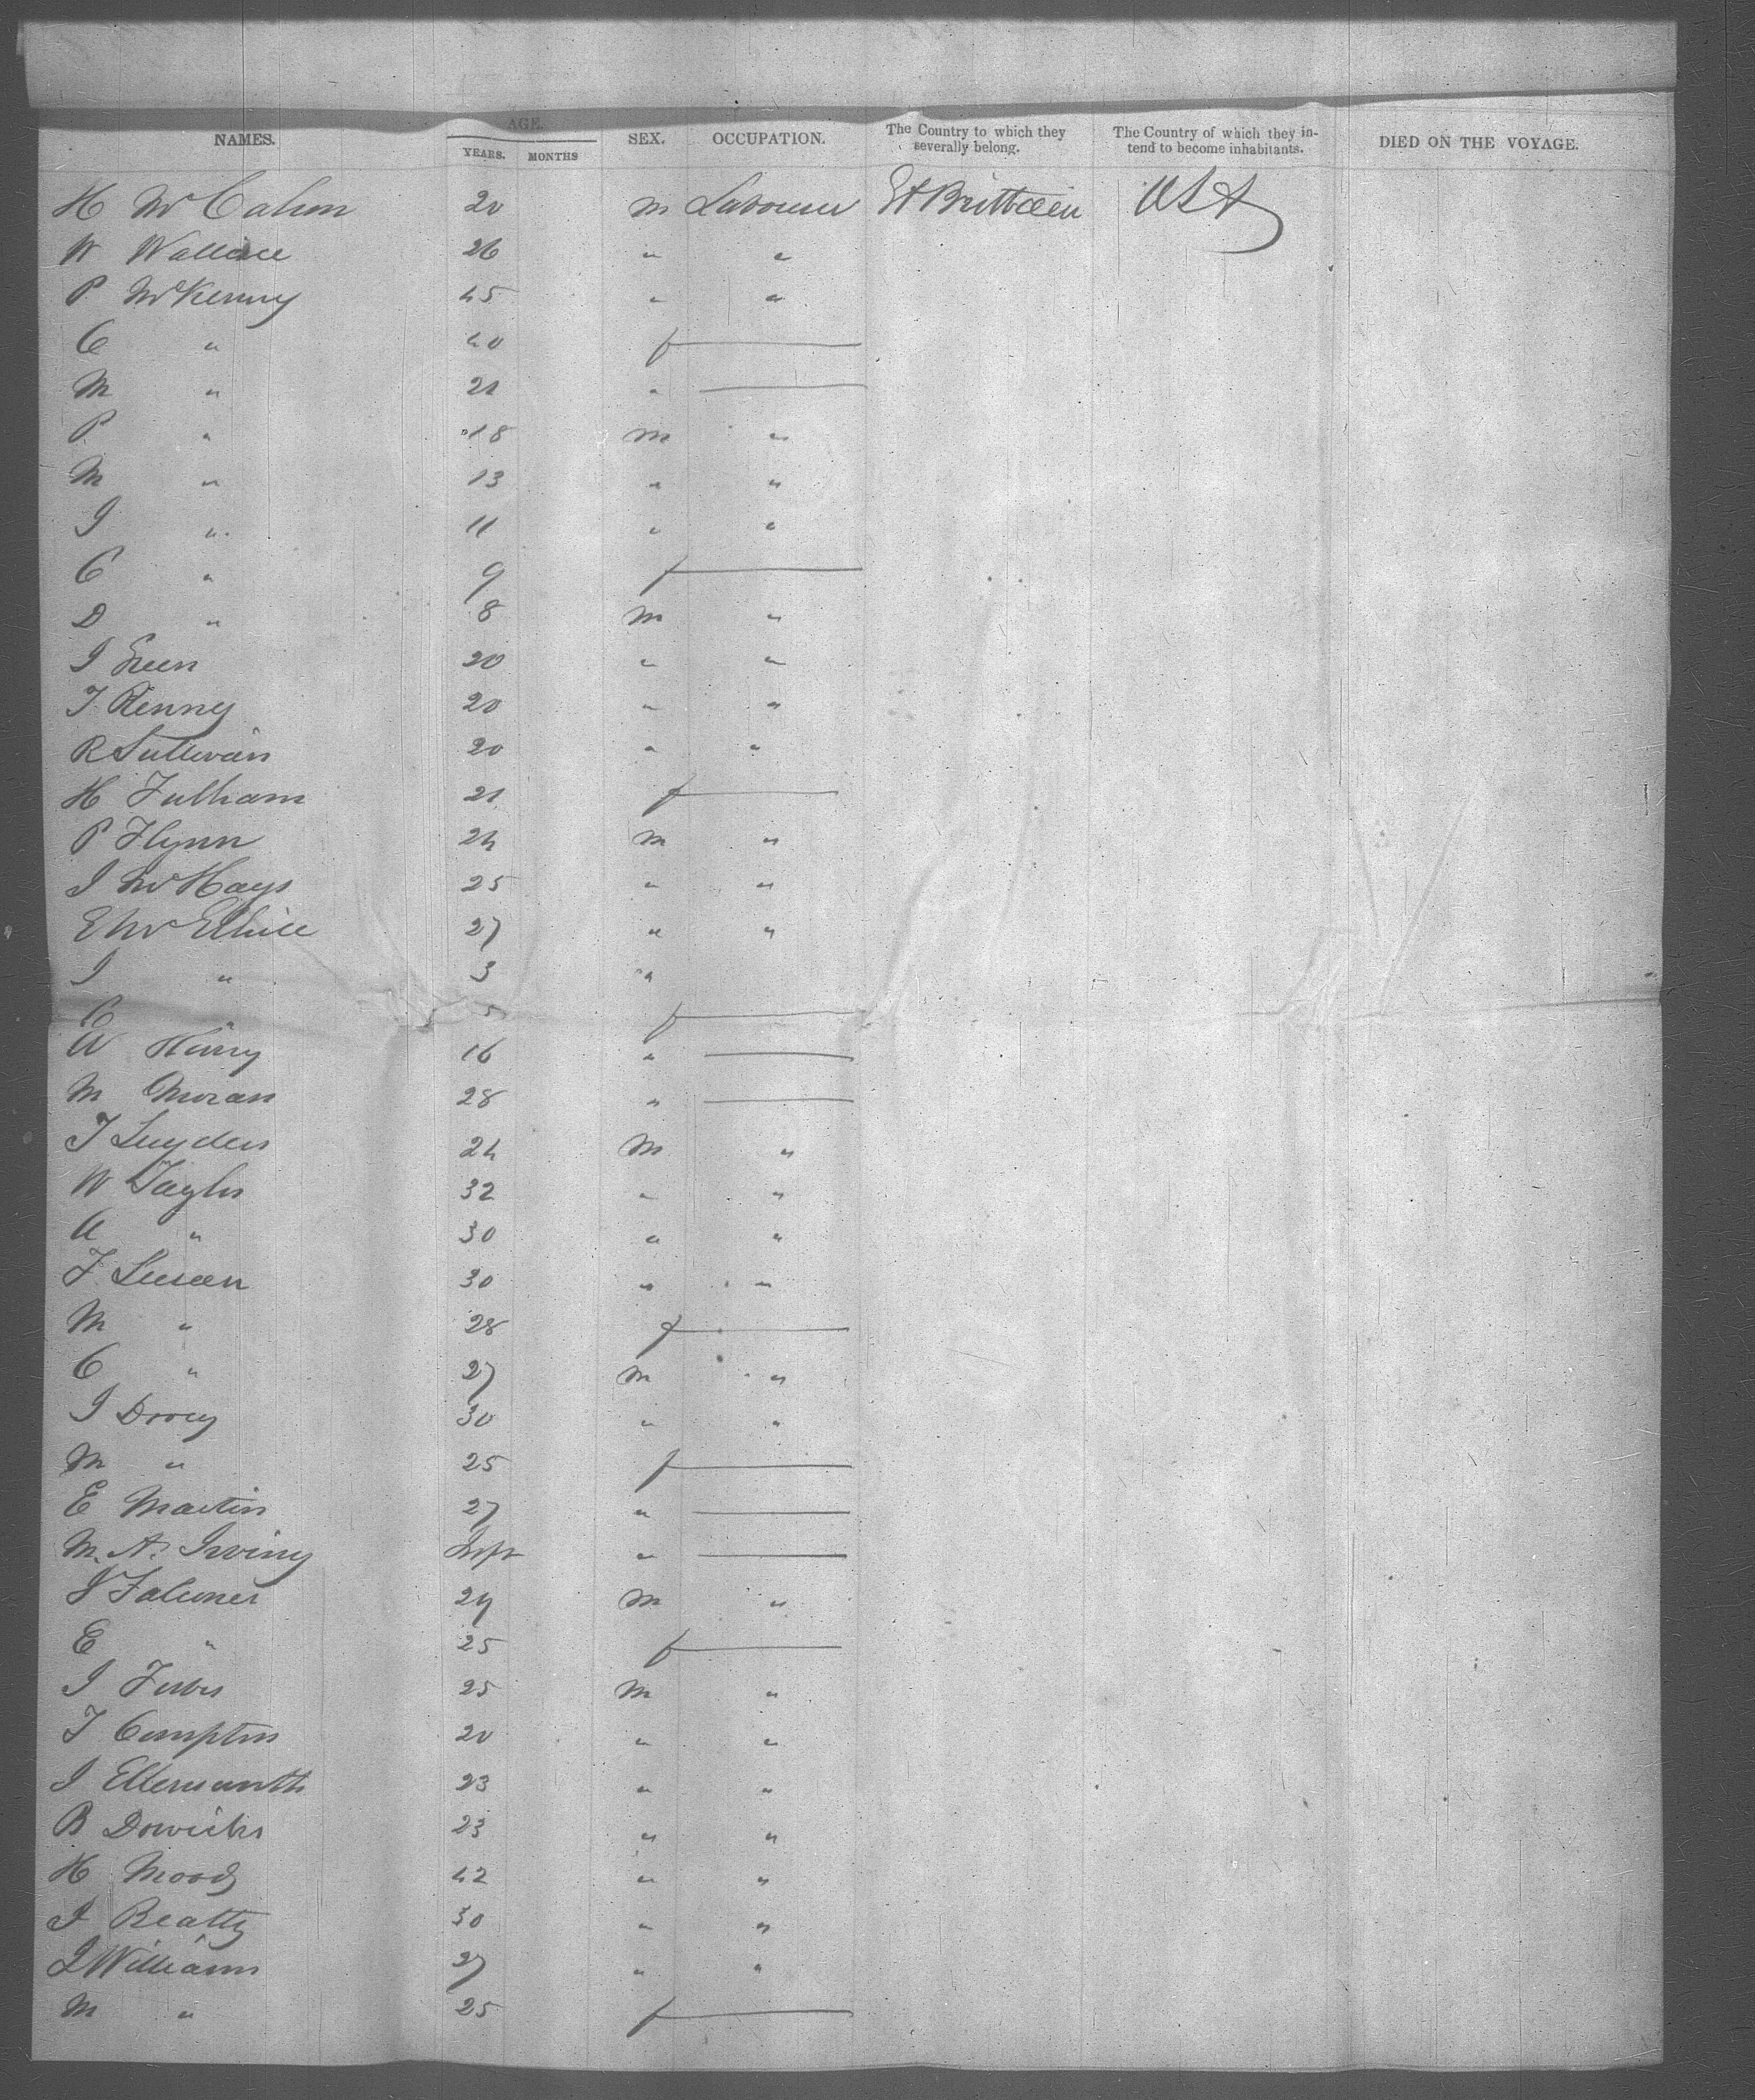 NAMES. AGE. YEARS. MONTHS SEX. OCCUPATION. The Country to which they severally belong. The Country of which they intend to become inhabitants. DIED ON THE VOYAGE.
H McCahon 20 m Labourer Gt Brittain USA
W Wallace 26 " "
P McKenny 45 " "
C " 40 f
M " 21 "
P " 18 m "
M " 13 " "
J " 11 " "
C " 9 f
D " 8 m "
J Green 20 " "
T Kenny 20 " "
R Sullivan 20 " "
H Fulham 21 f
P Flynn 24 m "
J McHays 25 " "
E 27 " "
J " 3 "
C " 5 f
W 16 "
M Moran 28 "
T 24 m "
W Taylor 32 " "
A " 30 " "
F 30 " "
M " 28 f
C " 27 m "
J 30 " "
M " 25 f
E Martin 27 "
M. A. Irving Inft "
J Falconer 24 m "
E " 25 f
J Forbes 25 m "
T Compton 20 " "
J 23 " "
B 23 " "
H Moody 42 " "
J Beatty 30 " "
J Williams 27 " "
M " 25 f